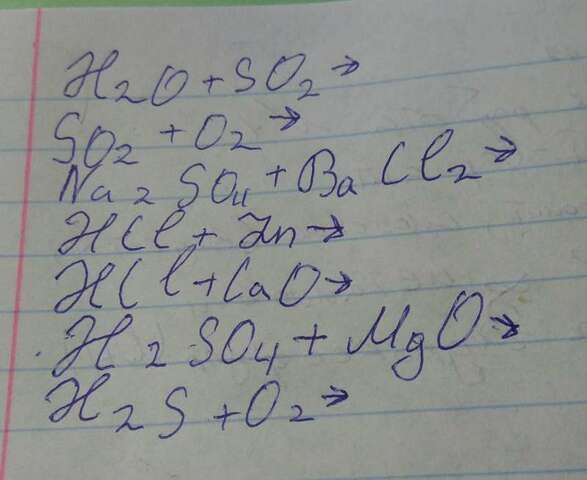 H₂O + SO₂ →
SO₂ + O₂ →
Na₂SO₄ + BaCl₂ →
HCl + Zn →
HCl + CaO →
H₂SO₄ + MgO →
H₂S + O₂ →